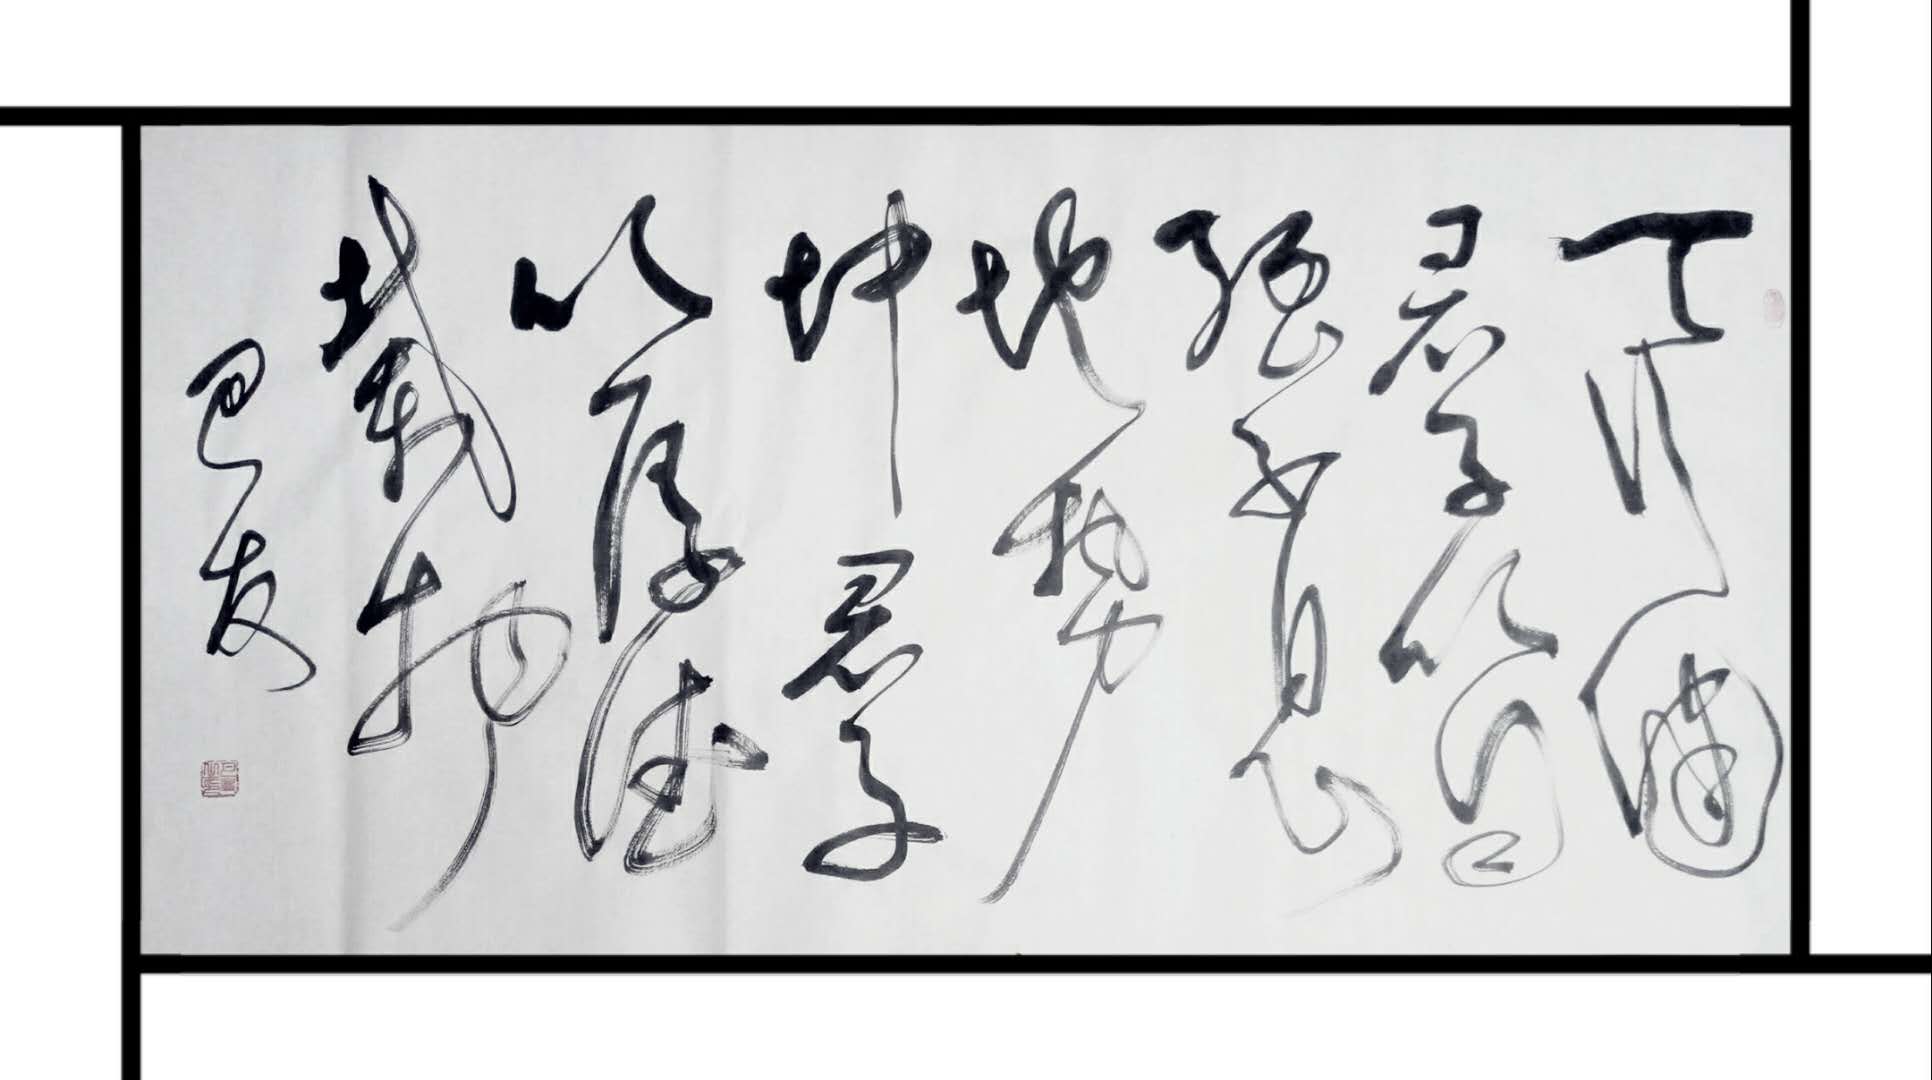 天行健
君子以自
强不息
地势
坤君子
以厚德
载物